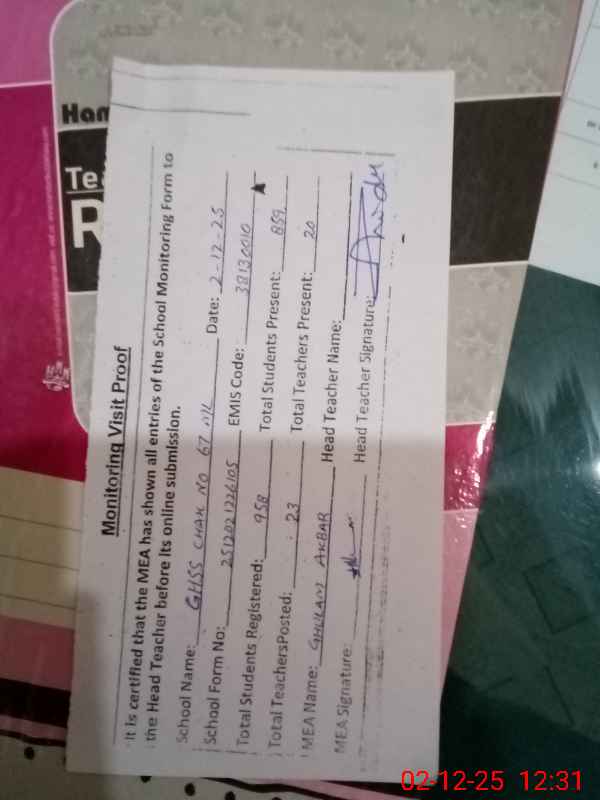 Ham
Te
R
Monitoring Visit Proof
It is certified that the MEA has shown all entries of the School Monitoring Form to
the Head Teacher before its online submission.
School Name: GHSS CHAK NO 67 ML Date: 2-12-25
School Form No: 2512021226105 EMIS Code: 38130010
Total Students Registered: 958 Total Students Present: 859
Total TeachersPosted: 23 Total Teachers Present: 20
MEA Name: GHULAM AKBAR Head Teacher Name:
MEA Signature: Head Teacher Signature:
02-12-25 12:31